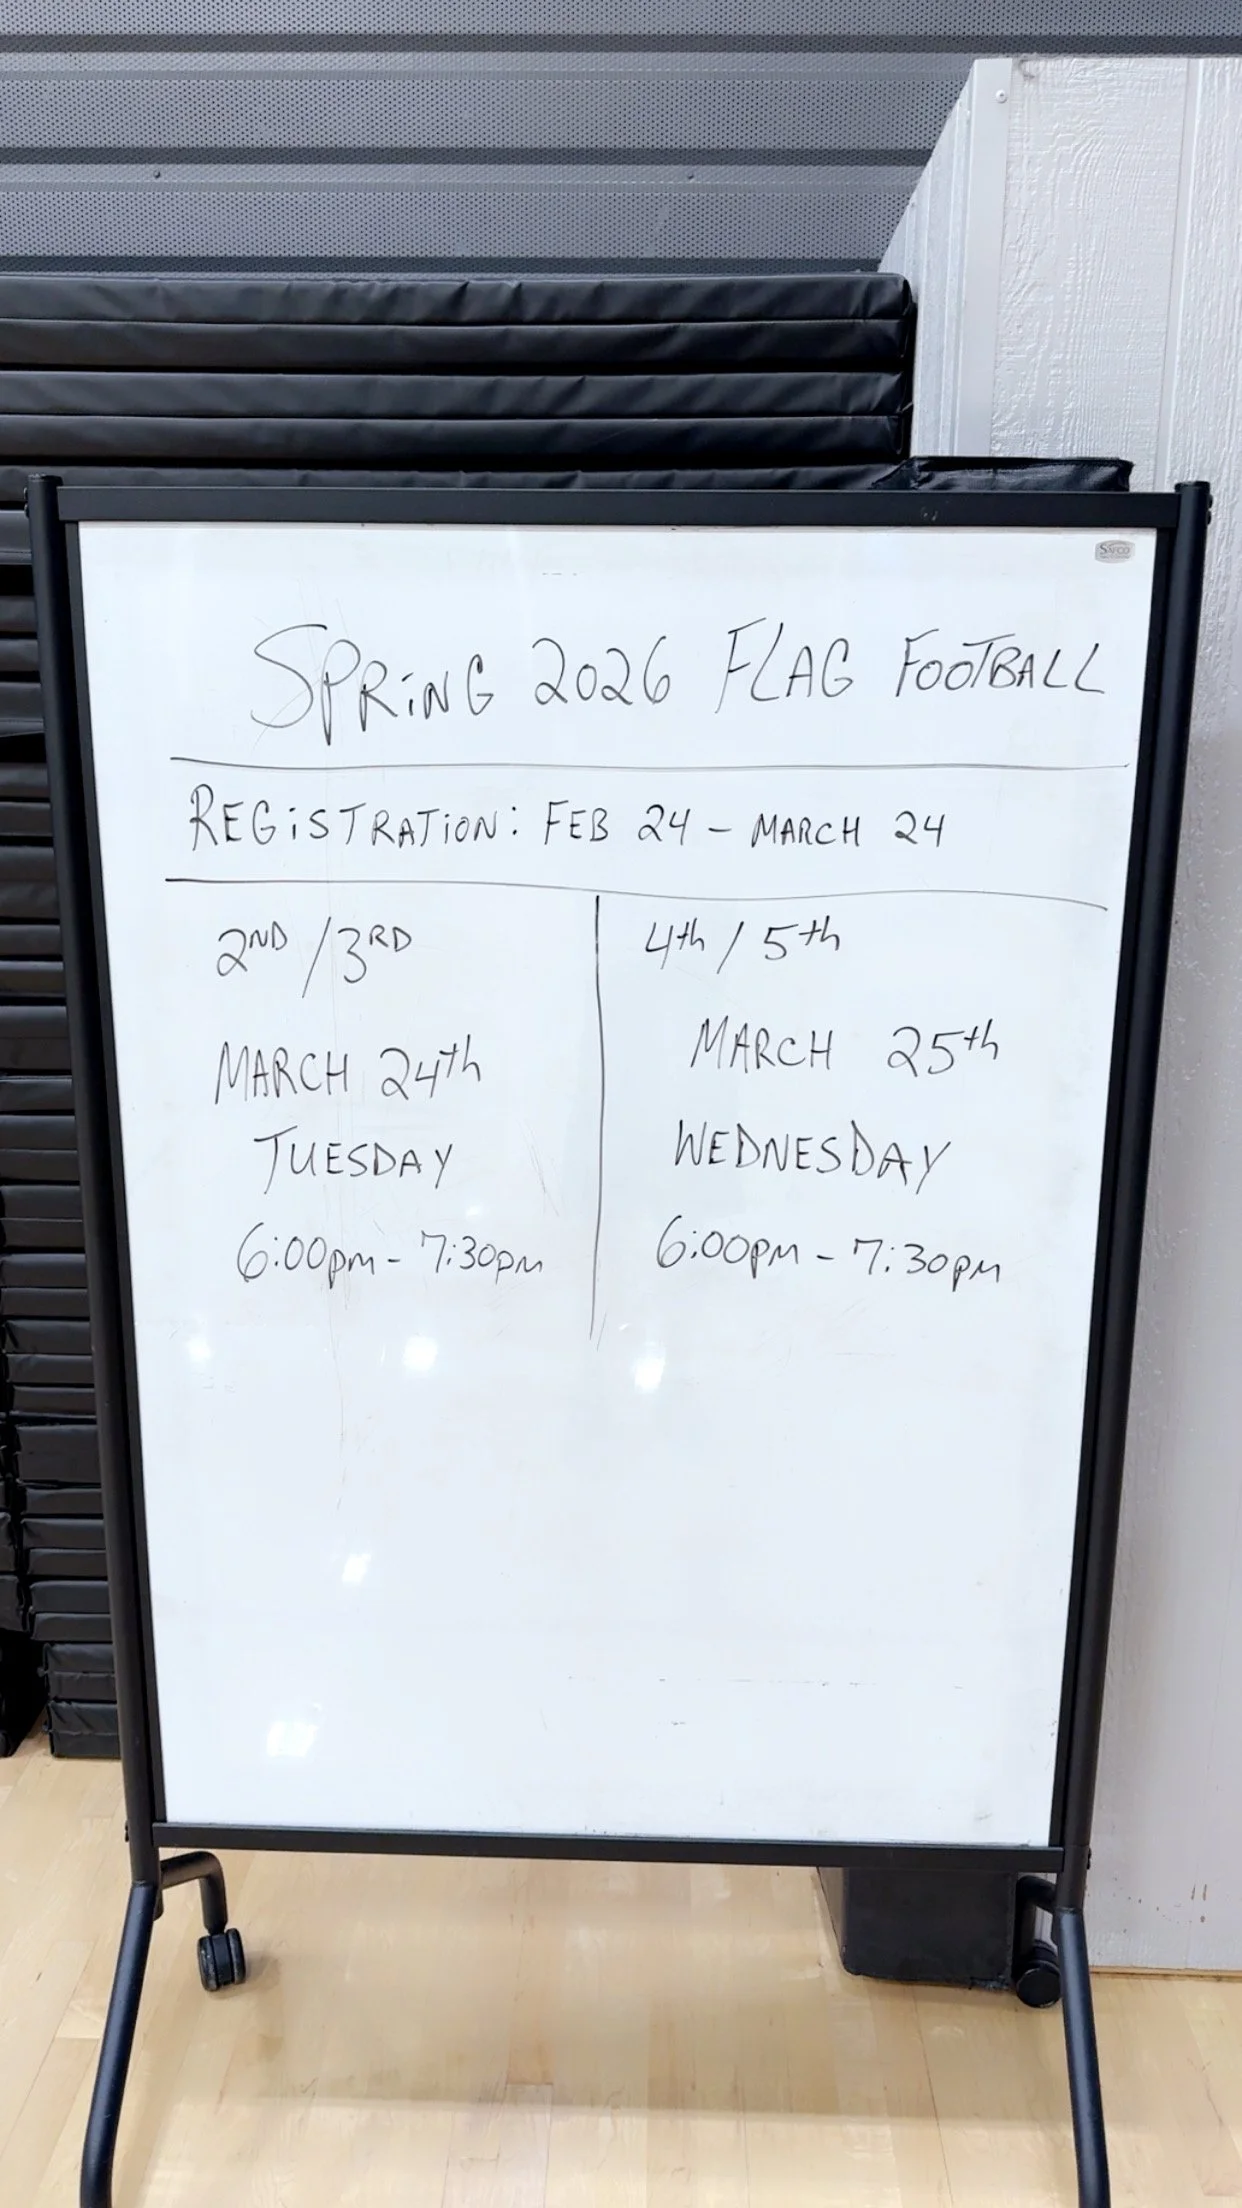 SAFCO
SPRING 2026 FLAG FOOTBALL
REGISTRATION: FEB 24 - MARCH 24
2ND / 3RD
MARCH 24th
TUESDAY
6:00pm - 7:30pm
4th / 5th
MARCH 25th
WEDNESDAY
6:00pm - 7:30pm